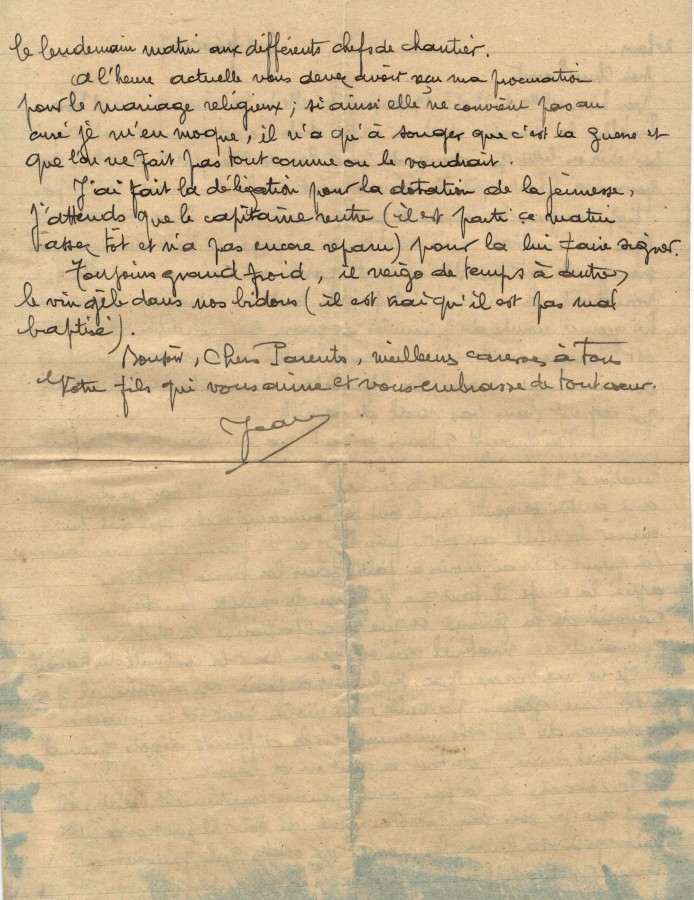 le lendemain matin aux différents chefs de chantier.
A l'heure actuelle vous devez avoir reçu ma procuration
pour le mariage religieux ; si ainsi elle ne convient pas au
curé je m'en moque, il n'a qu'à songer que c'est la guerre et
que l'on ne fait pas tout comme on le voudrait.
J'ai fait la délégation pour la dotation de la jeunesse,
j'attends que le capitaine rentre (il est parti ce matin
assez tôt et n'a pas encore reparu) pour la lui faire signer.
Toujours grand froid, il neige de temps à autre,
le vin gèle dans nos bidons (il est vrai qu'il est pas mal
baptisé).
Bonsoir, Chers Parents, meilleures caresses à Tous
Votre fils qui vous aime et vous embrasse de tout cœur.
Jean